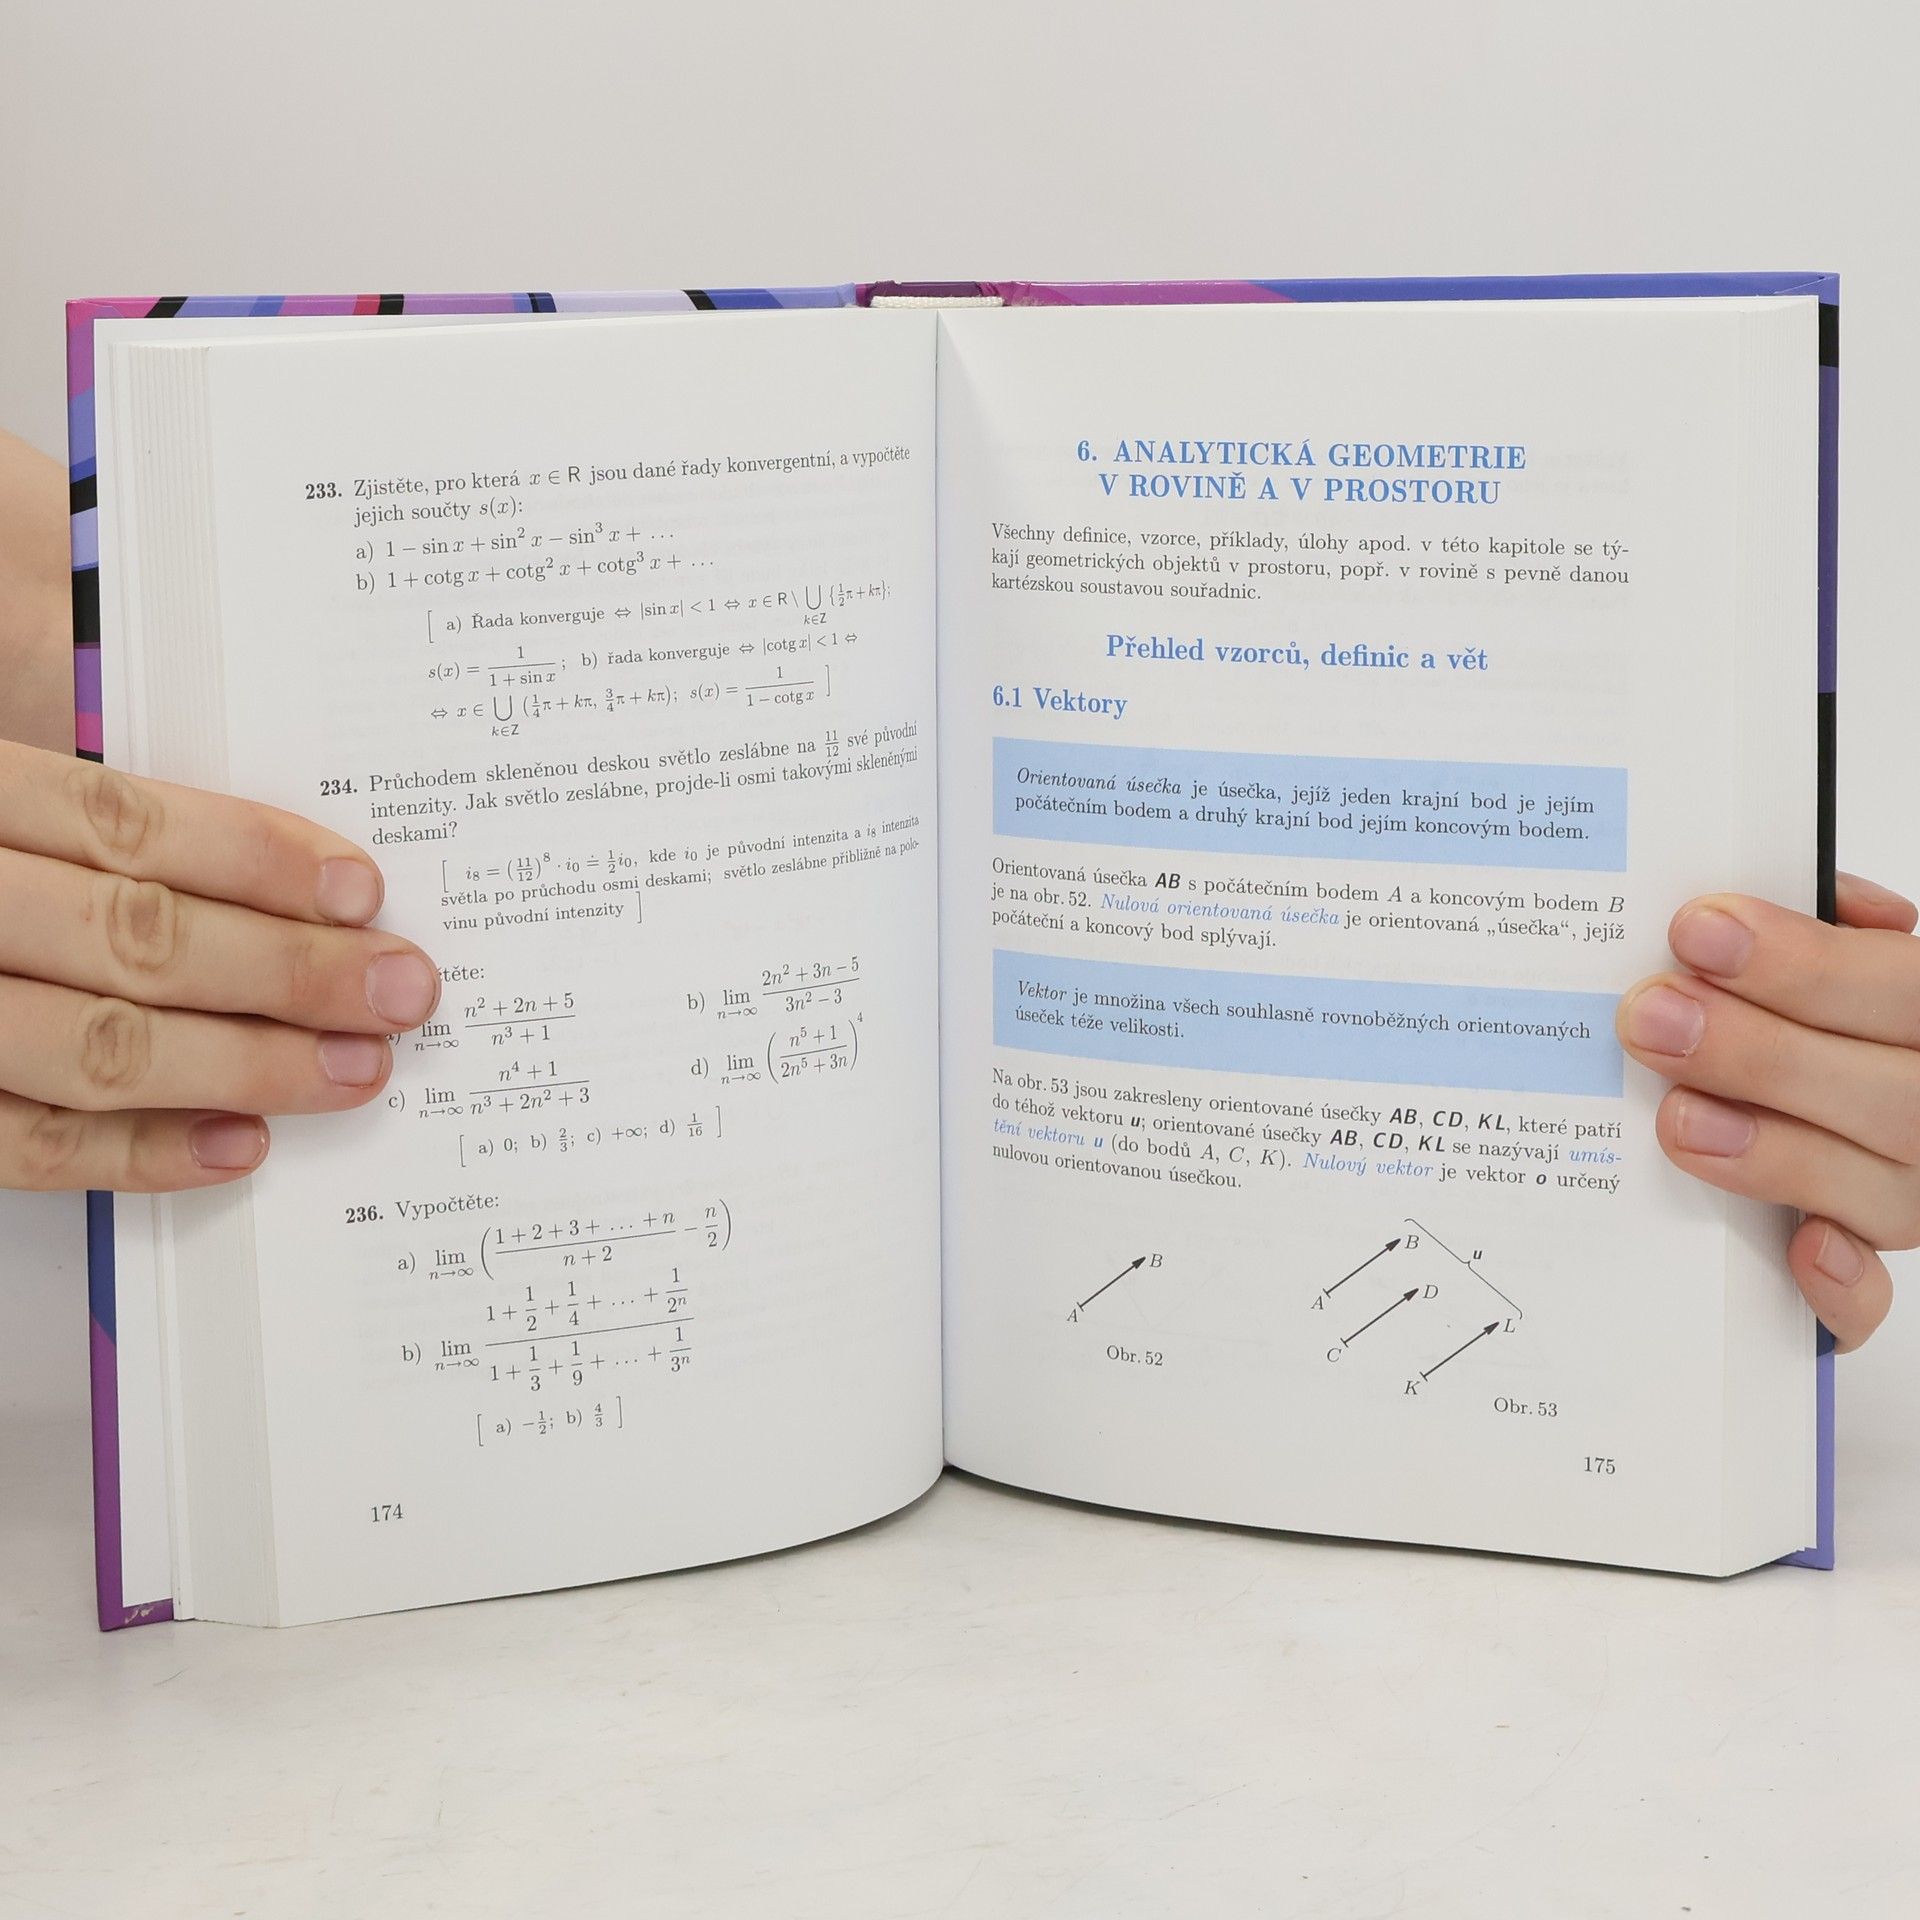 233. Zjistěte, pro která x ∈ R jsou dané řady konvergentní, a vypočtěte
jejich součty s(x):
a) 1 − sin x + sin² x − sin³ x + …
b) 1 + cotg x + cotg² x + cotg³ x + …
[ a) Řada konverguje ⇔ |sin x| < 1 ⇔ x ∈ R \ ⋃_{k∈Z} {½π + kπ};
s(x) = 1/(1 + sin x); b) řada konverguje ⇔ |cotg x| < 1 ⇔
⇔ x ∈ ⋃_{k∈Z} (¼π + kπ, ¾π + kπ); s(x) = 1/(1 − cotg x) ]
234. Průchodem skleněnou deskou světlo zeslábne na 11/12 své původní
intenzity. Jak světlo zeslábne, projde-li osmi takovými skleněnými
deskami?
[ i₈ = (11/12)⁸ · i₀ ≐ ½i₀, kde i₀ je původní intenzita a i₈ intenzita
světla po průchodu osmi deskami; světlo zeslábne přibližně na polo-
vinu původní intenzity ]
těte:
a) lim_{n→∞} (n² + 2n + 5)/(n³ + 1) b) lim_{n→∞} (2n² + 3n − 5)/(3n² − 3)
c) lim_{n→∞} (n⁴ + 1)/(n³ + 2n² + 3) d) lim_{n→∞} ((n⁵ + 1)/(2n⁵ + 3n))⁴
[ a) 0; b) 2/3; c) +∞; d) 1/16 ]
236. Vypočtěte:
a) lim_{n→∞} ((1 + 2 + 3 + … + n)/(n + 2) − n/2)
b) lim_{n→∞} (1 + 1/2 + 1/4 + … + 1/2ⁿ)/(1 + 1/3 + 1/9 + … + 1/3ⁿ)
[ a) −½; b) 4/3 ]
174
6. ANALYTICKÁ GEOMETRIE
V ROVINĚ A V PROSTORU
Všechny definice, vzorce, příklady, úlohy apod. v této kapitole se tý-
kají geometrických objektů v prostoru, popř. v rovině s pevně danou
kartézskou soustavou souřadnic.
Přehled vzorců, definic a vět
6.1 Vektory
Orientovaná úsečka je úsečka, jejíž jeden krajní bod je jejím
počátečním bodem a druhý krajní bod jejím koncovým bodem.
Orientovaná úsečka AB s počátečním bodem A a koncovým bodem B
je na obr. 52. Nulová orientovaná úsečka je orientovaná „úsečka“, jejíž
počáteční a koncový bod splývají.
Vektor je množina všech souhlasně rovnoběžných orientovaných
úseček téže velikosti.
Na obr. 53 jsou zakresleny orientované úsečky AB, CD, KL, které patří
do téhož vektoru u; orientované úsečky AB, CD, KL se nazývají umís-
tění vektoru u (do bodů A, C, K). Nulový vektor je vektor o určený
nulovou orientovanou úsečkou.
A B
Obr. 52
A B
C D
K L
u
Obr. 53
175